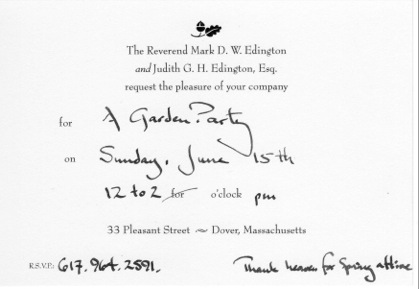 The Reverend Mark D. W. Edington
and Judith G. H. Edington, Esq.
request the pleasure of your company
for A Garden Party
on Sunday, June 15th
12 to 2 for o'clock pm
33 Pleasant Street ~ Dover, Massachusetts
R.S.V.P.: 617.964.2591. Thank heaven for Spring at time